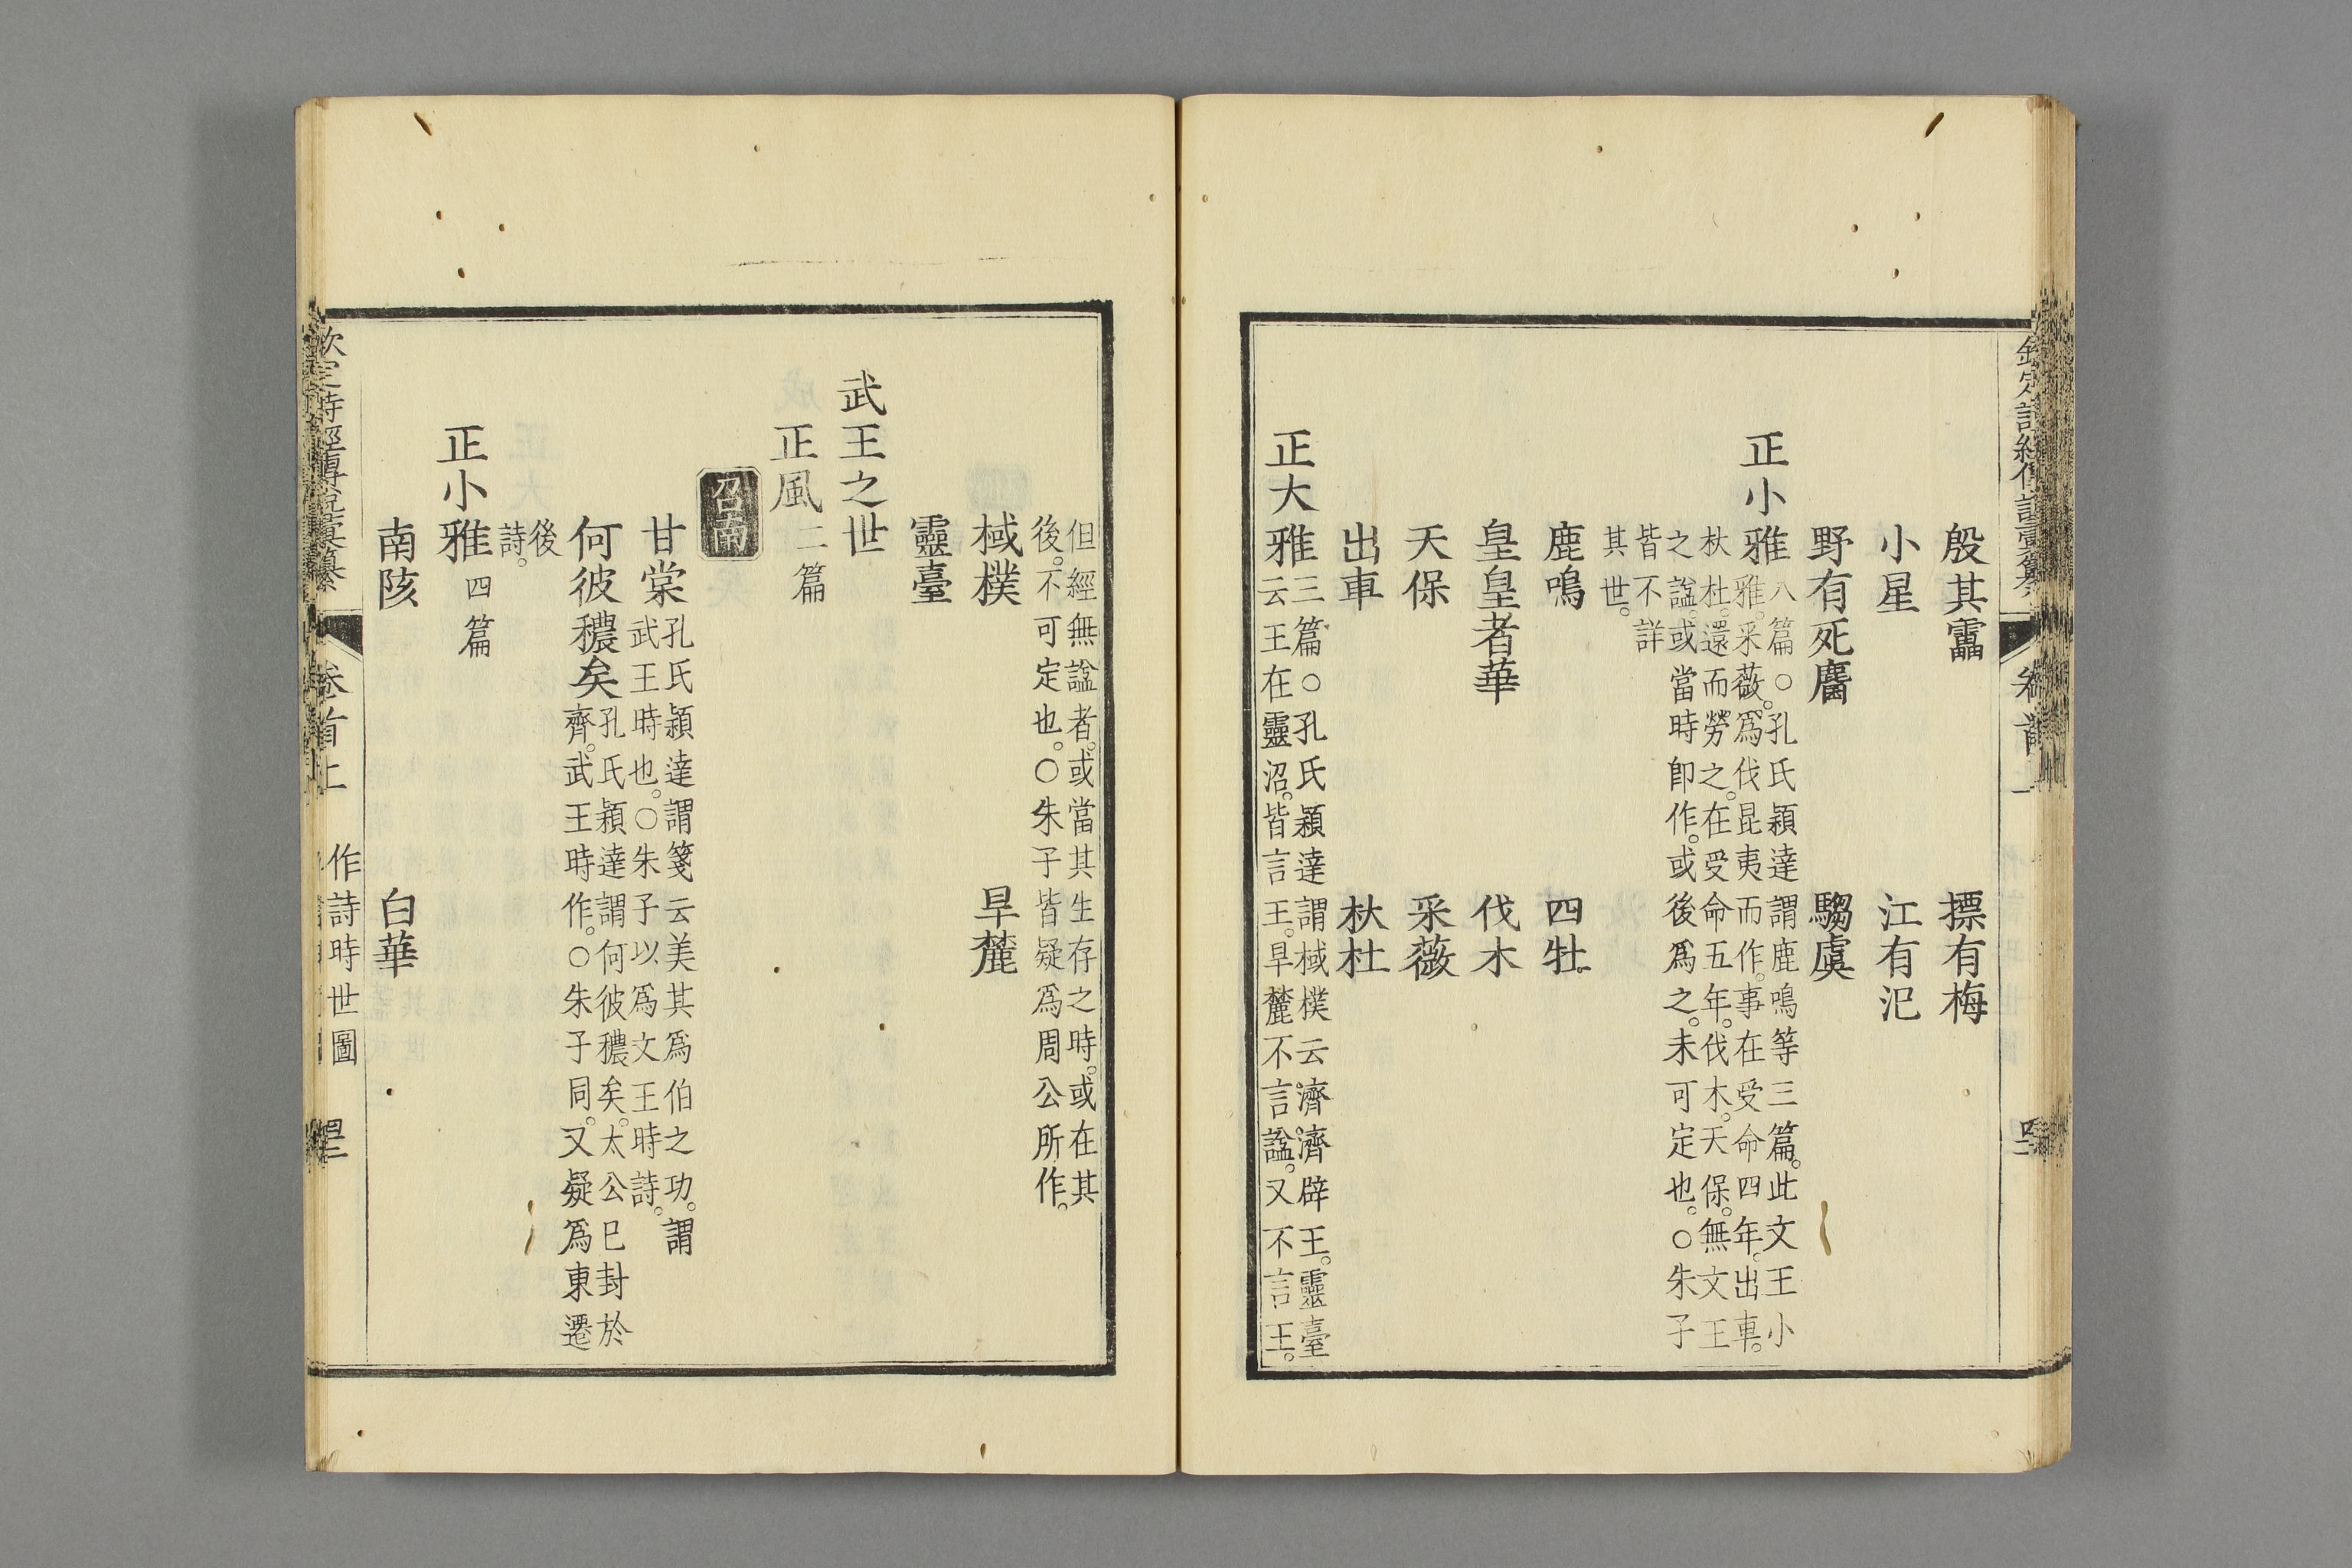 殷其靁 摽有梅
小星 江有汜
野有死麕 騶虞
正小雅 八篇○孔氏穎達謂鹿鳴等三篇。此文王小
雅。采薇。爲伐昆夷而作。事在受命四年。出車。
杕杜。還而勞之。在受命五年。伐木。天保。無文王
之諡。或當時卽作。或後爲之。未可定也。○朱子
皆不詳
其世。
鹿鳴 四牡
皇皇者華 伐木
天保 采薇
出車 杕杜
正大雅 三篇○孔氏穎達謂棫樸云濟濟辟王。靈臺
云王在靈沼。皆言王。旱麓不言諡。又不言王。
但經無諡者。或當其生存之時。或在其
後。不可定也。○朱子皆疑爲周公所作。
棫樸 旱麓
靈臺
武王之世
正風 二篇
召南
甘棠 孔氏穎達謂箋云美其爲伯之功。謂
武王時也。○朱子以爲文王時詩。
何彼穠矣 孔氏穎達謂何彼穠矣。太公已封於
齊。武王時作。○朱子同。又疑爲東遷
後
詩。
正小雅 四篇
南陔 白華
欽定詩經傳說彙纂 卷首上 作詩時世圖